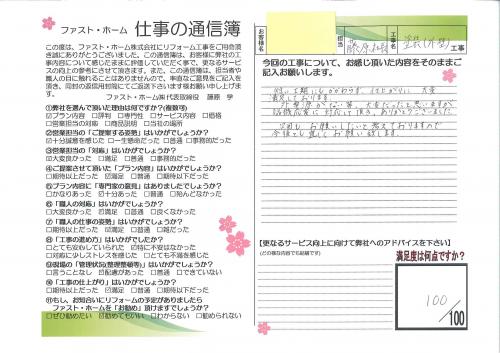 ファスト・ホーム 仕事の通信簿
この度は、ファスト・ホーム株式会社にリフォーム工事をご用命頂
き誠にありがとうございました。弊社では、お客様に弊社の工
事内容について感じたままに評価していただく事で、更なるサービ
スの向上の参考にさせて頂きます。また、この通信簿は、担当者や
職人の目に触れることはありませんので、率直なご意見をご記入
頂き、同封の返信用封筒にてご返送下さいます様お願い申し上げま
す。
ファスト・ホーム㈱代表取締役 藤原 学
①弊社を選んで頂いた理由は何ですか?(複数可)
☑プラン内容 □評判 □専門性 □サービス内容 □価格
□営業担当の対応 □商品内容 □当社の場所
②営業担当の「ご提案する姿勢」はいかがでしょうか?
☑十分誠意を感じた □一生懸命だった □普通 □事務的だった
③営業担当の「対応」はいかがでしょうか?
☑大変良かった □満足 □普通 □事務的だった
④ご提案させて頂いた「プラン内容」はいかがでしょうか?
□期待以上だった ☑満足 □普通 □期待以下だった
⑤プラン内容に「専門家の意見」はありましたでしょうか?
□かなりあった ☑十分あった □普通 □殆んどなかった
⑥「職人の対応」はいかがでしょうか?
□大変良かった ☑満足 □普通 □良くなかった
⑦「職人の仕事の姿勢」はいかがでしょうか?
□期待以上だった ☑満足 □普通 □雑だった
⑧「工事の進め方」はいかがでしたか?
□とても安心していられた ☑特に不安はなかった
□対応に少しストレスを感じた □とても不満を感じた
⑨現場の「管理状況(整理整頓等)」はいかがでしょうか?
□言うことなし ☑配慮があった □普通 □できていない
⑩「工事の仕上がり」はいかがでしょうか?
□期待以上だった ☑満足 □普通 □期待以下だった
⑪もし、お知合いにリフォームの予定がありましたら
ファスト・ホームを「お勧め」頂けますでしょうか?
□ぜひ勧めたい ☑勧めてもいい □わからない □勧められない
お客様名
担当 藤原
工事名 塗装(外壁) 工事
今回の工事について、お感じ頂いた内容をそのままご
記入お願いします。
短い工期にもかかわらず、仕上がりに 大変
満足しております。
大変だったと思いますが
対応して頂き、ありがとうございました。
次回も お願いしたいと考えておりますので
今後とも宜しくお願い致します。
【更なるサービス向上に向けて弊社へのアドバイスを下さい】
(どの様な内容でも結構です)
満足度は何点ですか?
100
/100